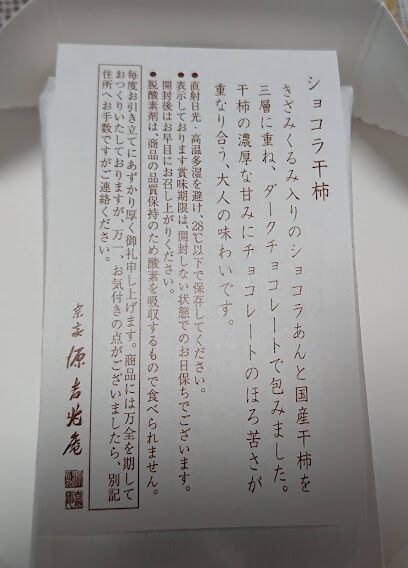 ショコラ干柿
きざみくるみ入りのショコラあんと国産干柿を
三層に重ね、ダークチョコレートで包みました。
干柿の濃厚な甘みにチョコレートのほろ苦さが
重なり合う、大人の味わいです。
●直射日光、高温多湿を避け、28℃以下で保存してください。
●表示しております賞味期限は、開封しない状態でのお日保ちでございます。
開封後はお早目にお召し上がりください。
●脱酸素剤は、商品の品質保持のため酸素を吸収するもので食べられません。
毎度お引き立てにあずかり厚く御礼申し上げます。商品には万全を期して
おつくりいたしておりますが、万一、お気付きの点がございましたら、別記
住所へお手数ですがご連絡ください。
宗家 源吉兆庵